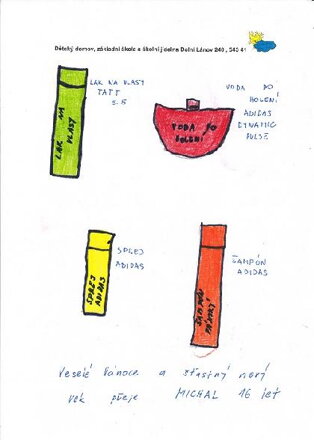 Dětský domov, základní škola a školní jídelna Dolní Lánov 240, 543 41
LAK NA VLASY
TAFT
č. 5
LAK NA
VLASY
VODA PO
HOLENÍ
ADIDAS
DYNAMIC
PULSE
VODA PO
HOLENÍ
SPREJ
ADIDAS
SPREJ
ADIDAS
ŠAMPÓN
ADIDAS
ŠAMPÓN
Veselé Vánoce a šťastný nový
rok přeje MICHAL 16 let